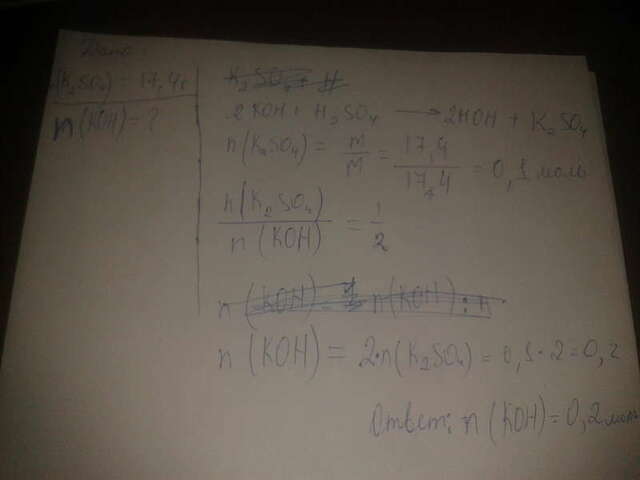 Дано:
m(K₂SO₄) = 17,4г
n(KOH) = ?
K₂SO₄ + H
2KOH + H₂SO₄ → 2HOH + K₂SO₄
n(K₂SO₄) = m/M = 17,4/174 = 0,1 моль
n(K₂SO₄)/n(KOH) = 1/2
n(KOH) = 2·n(K₂SO₄) = 0,1·2 = 0,2
Ответ: n(KOH) = 0,2 моль